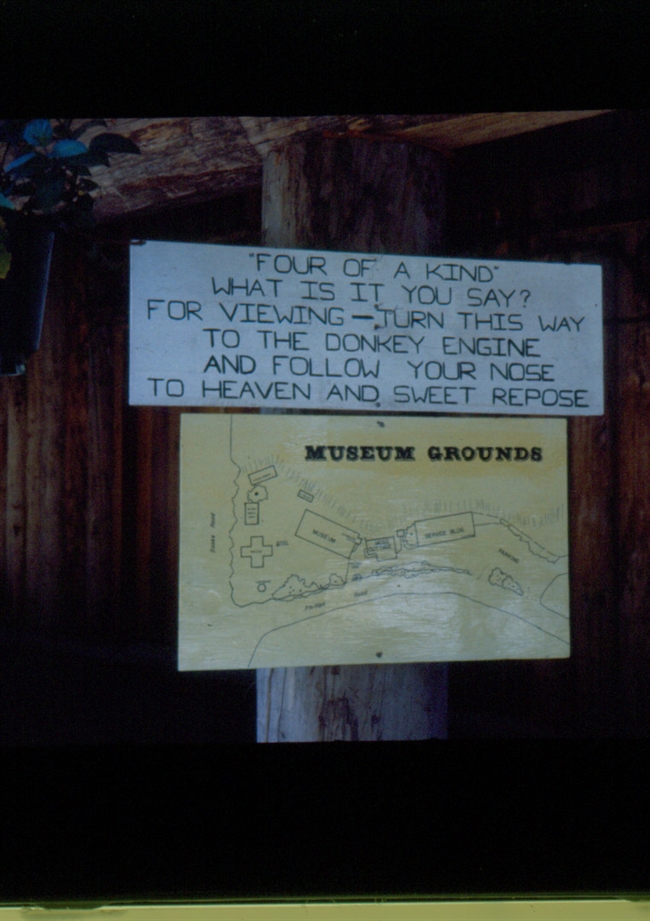 "FOUR OF A KIND"
WHAT IS IT YOU SAY?
FOR VIEWING — TURN THIS WAY
TO THE DONKEY ENGINE
AND FOLLOW YOUR NOSE
TO HEAVEN AND SWEET REPOSE
MUSEUM GROUNDS
MUSEUM
SERVICE BLDG.
PARKING